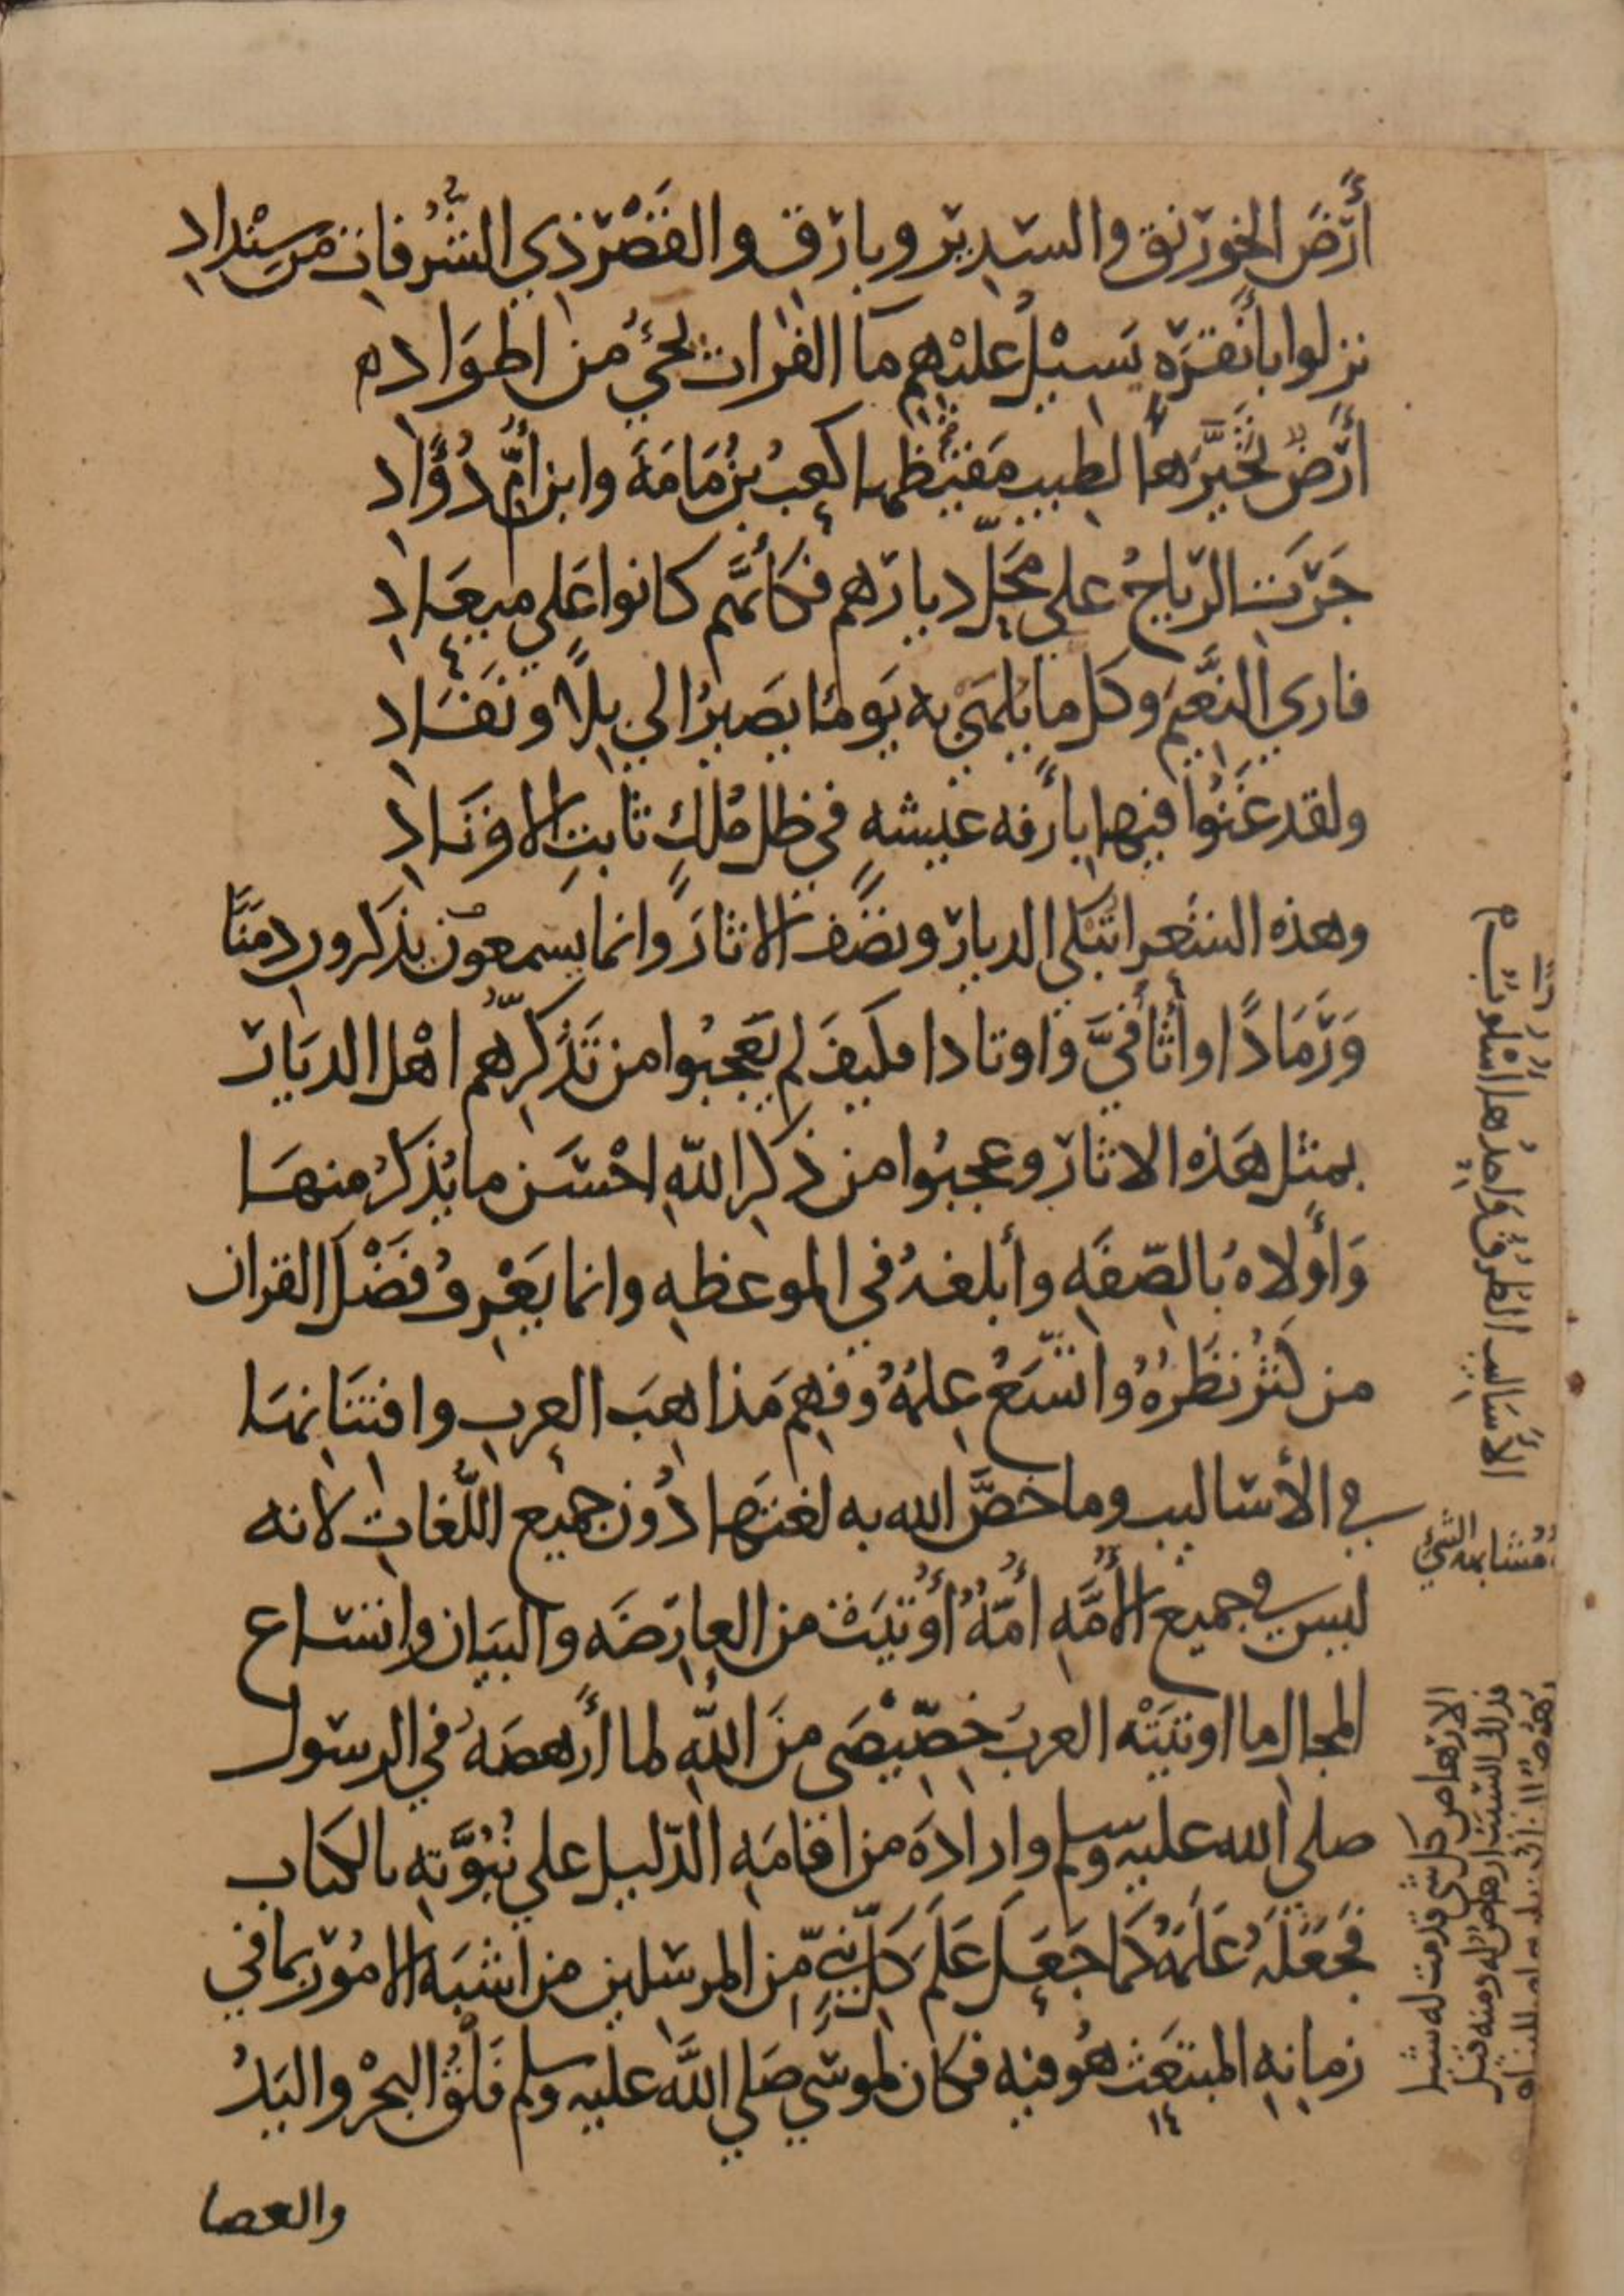 أَرْضَ الخَوَرْنَقِ والسَّدِيْرِ وبارِقٍ والقَصْرِ ذي الشُّرفاتِ من سِنْدادِ
نزلوا بأَنقِرَةٍ يَسِيْلُ عليْهِم مآ الفُراتِ يَجيُ من اطوَادِ
أَرضٌ تَخَيَّرَهَا لطيبِ مَقيْظِها كعبُ بنُ مَامَةَ وابن أُمِّ دُؤَادِ
جَرَتِ الرّياحُ علي مَحَلِّ ديارهم فكأنّهم كانوا عَلي ميعَادِ
فاري النَّعيمَ وكل ما يُلهَي به يَومًا يصَيرُ الي بِلاً ونَفَادِ
ولقد غَنَوْا فيها بأَرفه عيشهٍ في ظل مُلكٍ ثابتِ الاوتَادِ
وهذه الشعرا تبكي الديار وتصَف الاثارَ وانما يسمعون بذكرون دِمَنًا
وَرَمَادًا وأَثافيَّ واوتادا فكيفَ لم يَعجبُوا من تَذَكرِّهم اهْل الديَار
بمثل هَذه الاثار وعجبُوا من ذكرِ اللّهِ احْسَن ما يُذكرُ منهَا
وَأَولاهُ بالصِّفَهِ وأبلغهُ في الموعظهِ وانما يَعْرِفُ فَضْلَ القران
من كَثُر نظَرُهُ واتّسَعُ عِلمُهُ وفهِم مَذاهِبَ العربِ وافتِنَانهَا
في الأسَاليب وما خَصَّ الله به لغتهَا دُون جميع اللُّغاتِ لانه
ليس في جميع الأُمَّهِ أُمّهٌ أُوتيَتْ من العارِضَه والبيَان واتسَاع
المجال ما اوتيَتْه العربُ خِصِّيْصَي منَ اللّهِ لما أَرهصَهُ في الرسَول
صلى الله عليه وسلم وارادَهُ من اقامَهِ الدّليل علي نُبُوَّتِهِ بالكتَاب
فَجعَلَهُ عَلَمَهُ كَما جَعَلَ عَلَمَ كلِّ نبيٍّ مِن المرسَلين من اشبَه الامُور بما في
زمانِهِ المبتعَث هُو فيه فكان لموسَي صَلي اللَّه عليه وسلم فَلْقُ البحْر واليَدُ
والعصا
الأَسَاليب الطُرُقُ وَاحِدُها اسْلُوبٌ
مُشابهه الشي
الارهاص